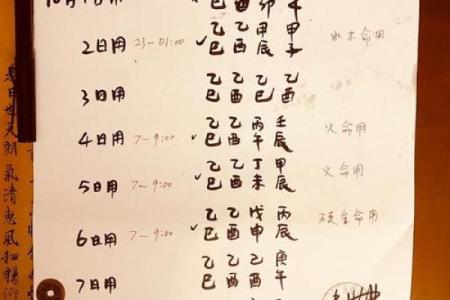 10月1日用
巳 酉 卯 午
乙 乙 甲 甲
2日用 23-01:00 ✓巳 酉 辰 子 水木命用
乙 乙 乙 乙
3日用 巳 酉 巳 酉
乙 乙 丙 壬
4日用 7-9:00 ✓巳 酉 午 辰 火命用
乙 乙 丁 甲
5日用 7-9:00 ✓巳 酉 未 辰 火命用
乙 乙 戊 丙
6日用 7-9:00 ✓巳 酉 申 辰 金命用
乙 乙 己 庚
7日用 巳 酉 酉 午
是日也天朗氣清惠風和暢仰